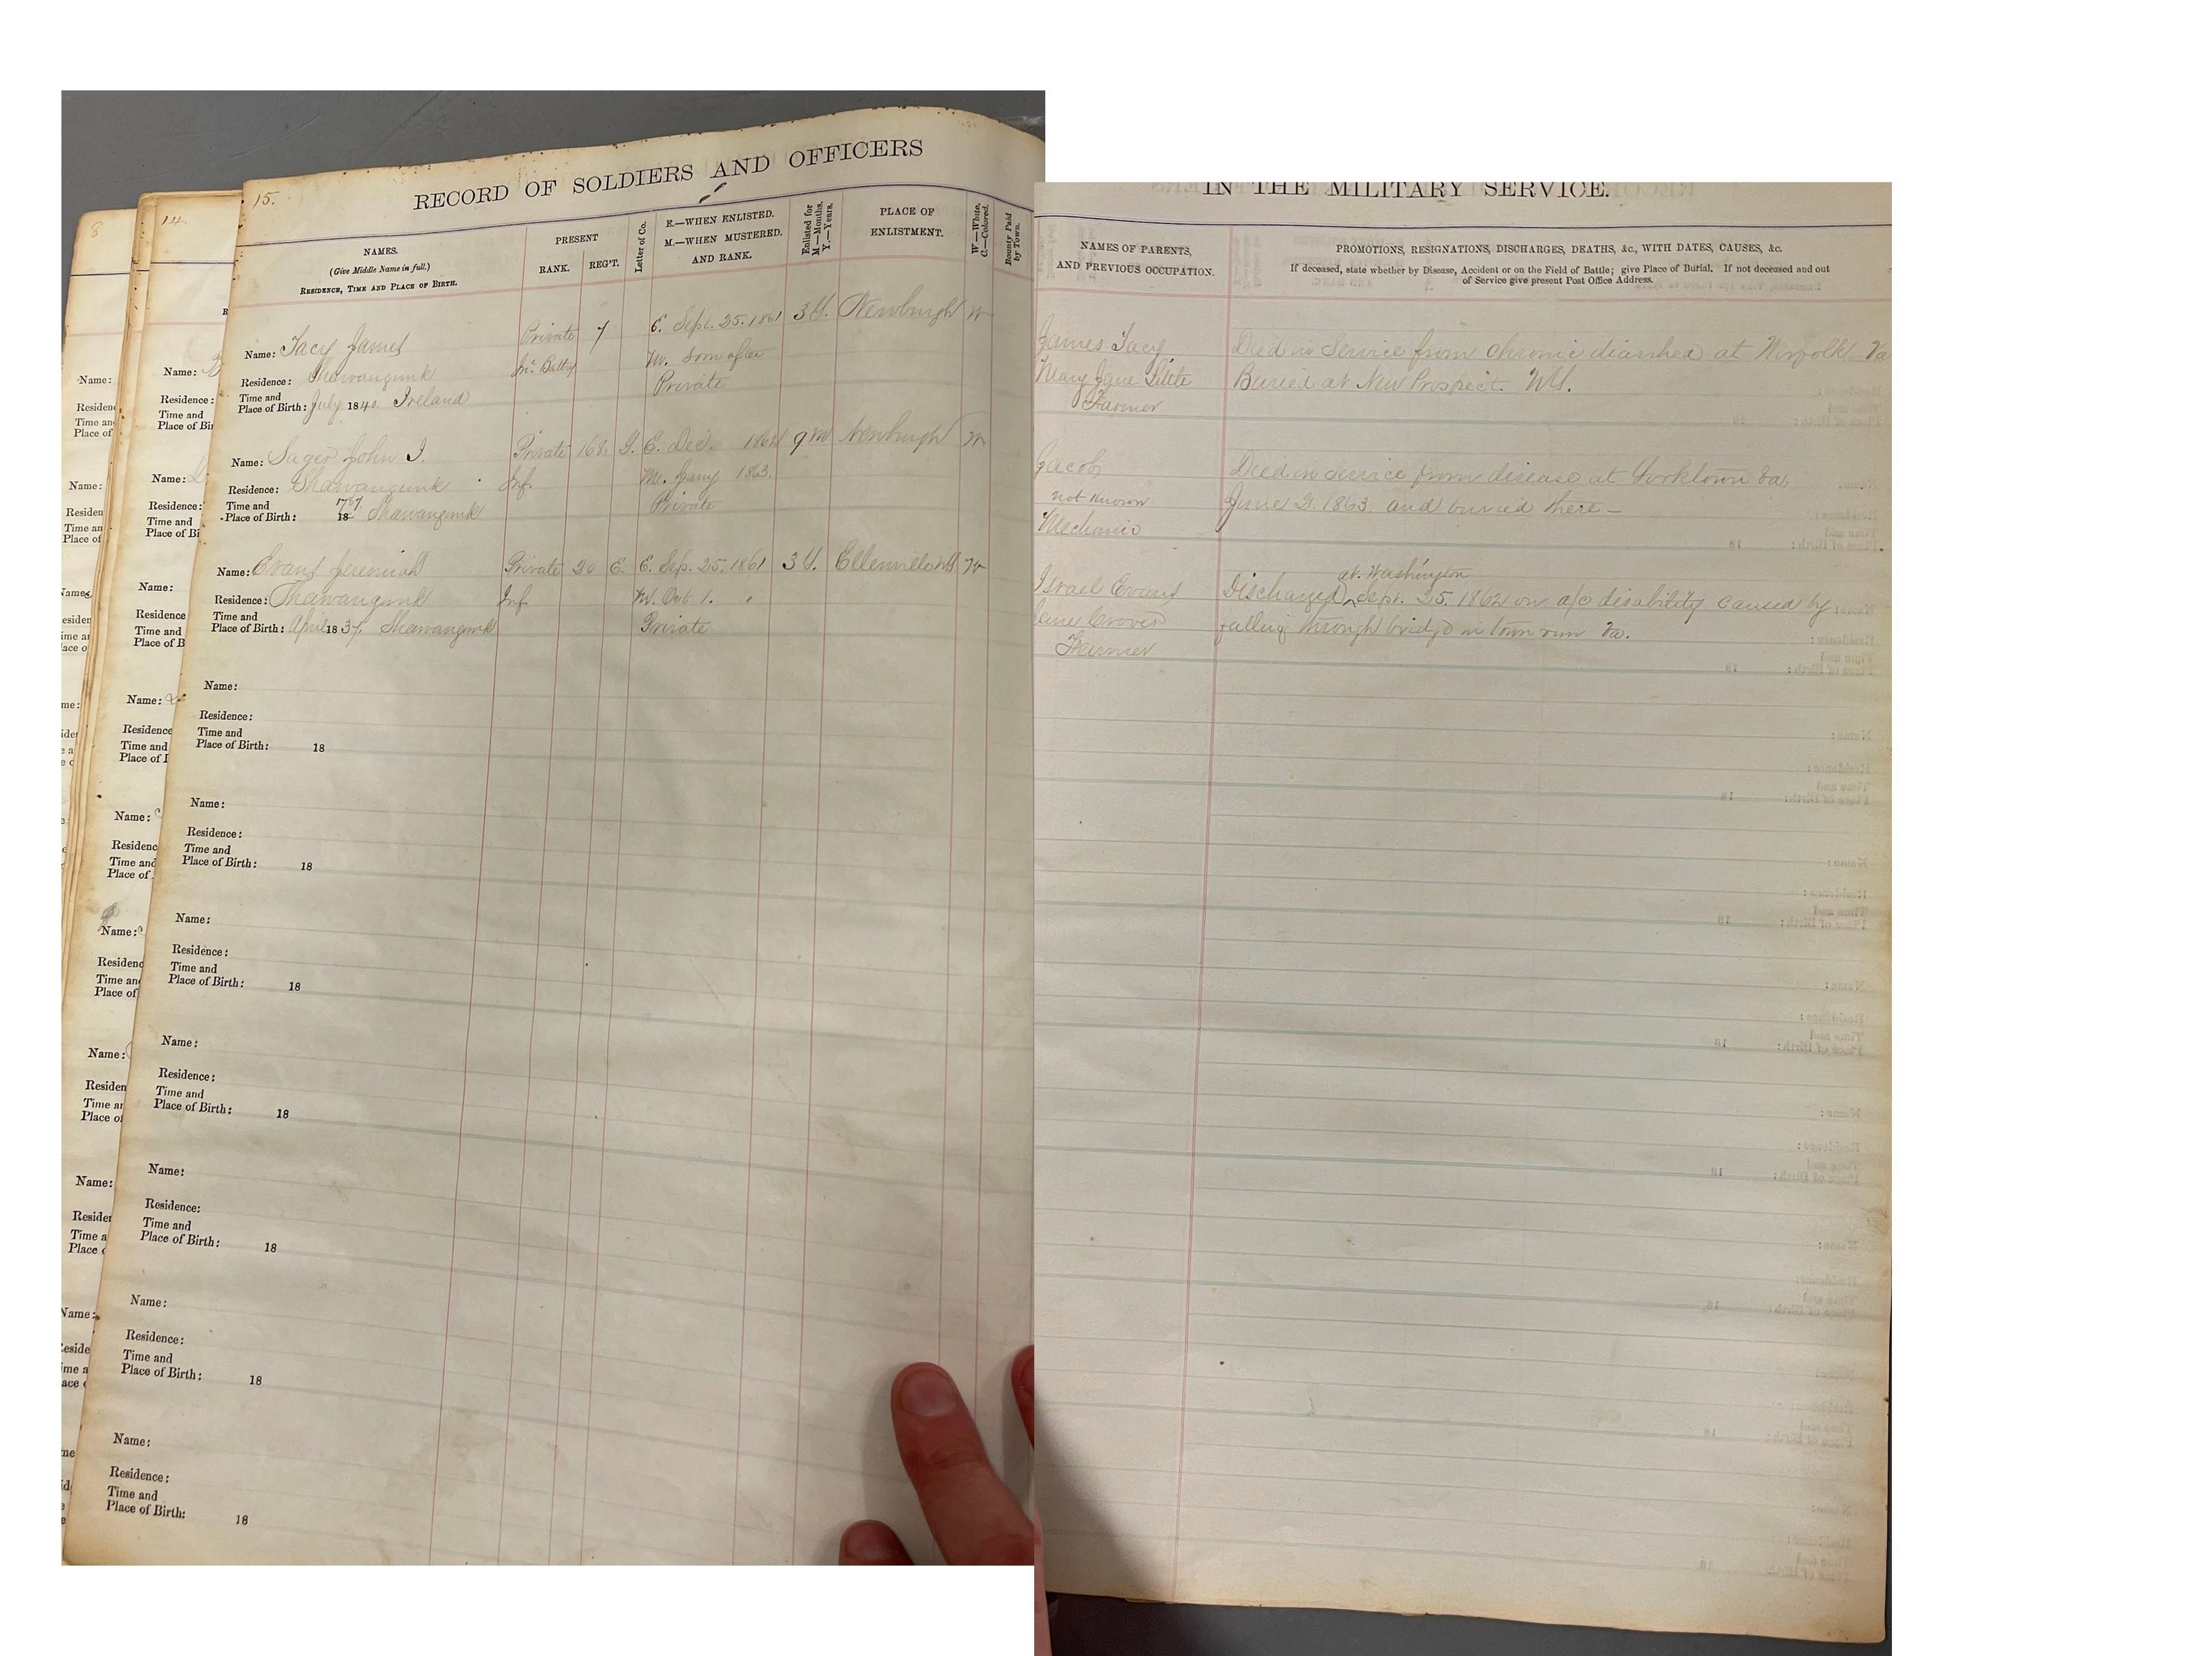 15.
RECORD OF SOLDIERS AND OFFICERS
NAMES.
(Give Middle Name in full.)
RESIDENCE, TIME AND PLACE OF BIRTH.
PRESENT
RANK. REG'T.
Letter of Co.
E.—WHEN ENLISTED.
M.—WHEN MUSTERED.
AND RANK.
Enlisted for
M.—Months.
Y.—Years.
PLACE OF
ENLISTMENT.
W.—White.
C.—Colored.
Bounty Paid
by Town.
Name: Tacy James Private 7 E. Sept. 25. 1861 3 Y. Newburgh W
Residence: Shawangunk M. Soon after
Time and Private
Place of Birth: July 1840. Ireland
Name: Sager John J. Private 168 G. E. Dec. 1862 9 M Newburgh W
Residence: Shawangunk Inf. M. Jany 1863.
Time and Private
Place of Birth: 18 Shawangunk
Name: Evans Jeremiah Private 20 E. E. Sep. 25. 1861 3 Y. Ellenville NY W
Residence: Shawangunk Inf M. Oct. 1.
Time and Private
Place of Birth: April 1837. Shawangunk
Name:
Residence:
Time and
Place of Birth: 18
Name:
Residence:
Time and
Place of Birth: 18
Name:
Residence:
Time and
Place of Birth: 18
Name:
Residence:
Time and
Place of Birth: 18
Name:
Residence:
Time and
Place of Birth: 18
Name:
Residence:
Time and
Place of Birth: 18
Name:
Residence:
Time and
Place of Birth: 18
IN THE MILITARY SERVICE.
NAMES OF PARENTS,
AND PREVIOUS OCCUPATION.
PROMOTIONS, RESIGNATIONS, DISCHARGES, DEATHS, &c., WITH DATES, CAUSES, &c.
If deceased, state whether by Disease, Accident or on the Field of Battle; give Place of Burial. If not deceased and out
of Service give present Post Office Address.
James Tacy Died in Service from chronic diarrhea at Norfolk Va
Mary Jane Little Buried at New Prospect. NY.
Farmer
Jacob Died in service from disease at Yorktown Va,
not known June 21. 1863. and buried there —
Mechanic
at Washington
Israel Evans Discharged Sept. 25. 1862 on a/c disability caused by
falling through bridge in town run Va.
Farmer